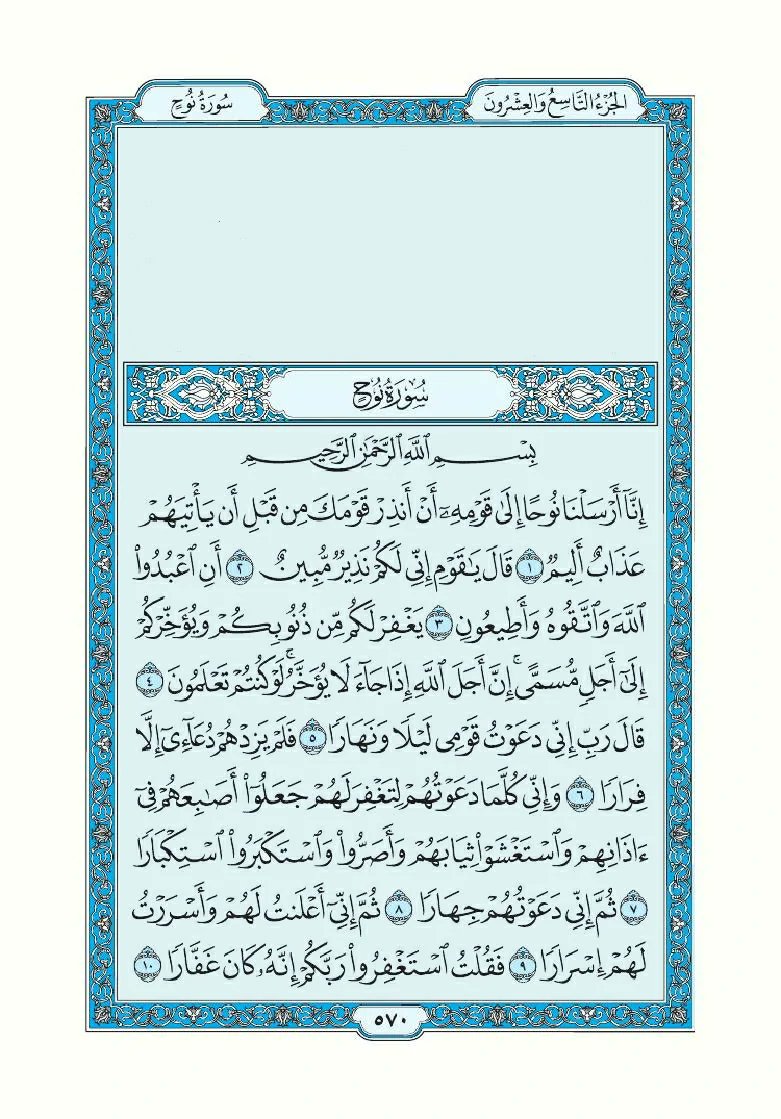 الجُزْءُ التَّاسِعُ وَالعِشْرُونَ
سُورَةُ نُوحٍ
سُورَةُ نُوحٍ
بِسْمِ ٱللَّهِ ٱلرَّحْمَٰنِ ٱلرَّحِيمِ
إِنَّآ أَرْسَلْنَا نُوحًا إِلَىٰ قَوْمِهِۦٓ أَنْ أَنذِرْ قَوْمَكَ مِن قَبْلِ أَن يَأْتِيَهُمْ
عَذَابٌ أَلِيمٌ ١ قَالَ يَٰقَوْمِ إِنِّى لَكُمْ نَذِيرٌ مُّبِينٌ ٢ أَنِ ٱعْبُدُوا۟
ٱللَّهَ وَٱتَّقُوهُ وَأَطِيعُونِ ٣ يَغْفِرْ لَكُم مِّن ذُنُوبِكُمْ وَيُؤَخِّرْكُمْ
إِلَىٰٓ أَجَلٍ مُّسَمًّى ۚ إِنَّ أَجَلَ ٱللَّهِ إِذَا جَآءَ لَا يُؤَخَّرُ ۖ لَوْ كُنتُمْ تَعْلَمُونَ ٤
قَالَ رَبِّ إِنِّى دَعَوْتُ قَوْمِى لَيْلًا وَنَهَارًا ٥ فَلَمْ يَزِدْهُمْ دُعَآءِىٓ إِلَّا
فِرَارًا ٦ وَإِنِّى كُلَّمَا دَعَوْتُهُمْ لِتَغْفِرَ لَهُمْ جَعَلُوٓا۟ أَصَٰبِعَهُمْ فِىٓ
ءَاذَانِهِمْ وَٱسْتَغْشَوْا۟ ثِيَابَهُمْ وَأَصَرُّوا۟ وَٱسْتَكْبَرُوا۟ ٱسْتِكْبَارًا
٧ ثُمَّ إِنِّى دَعَوْتُهُمْ جِهَارًا ٨ ثُمَّ إِنِّىٓ أَعْلَنتُ لَهُمْ وَأَسْرَرْتُ
لَهُمْ إِسْرَارًا ٩ فَقُلْتُ ٱسْتَغْفِرُوا۟ رَبَّكُمْ إِنَّهُۥ كَانَ غَفَّارًا ١٠
٥٧٠